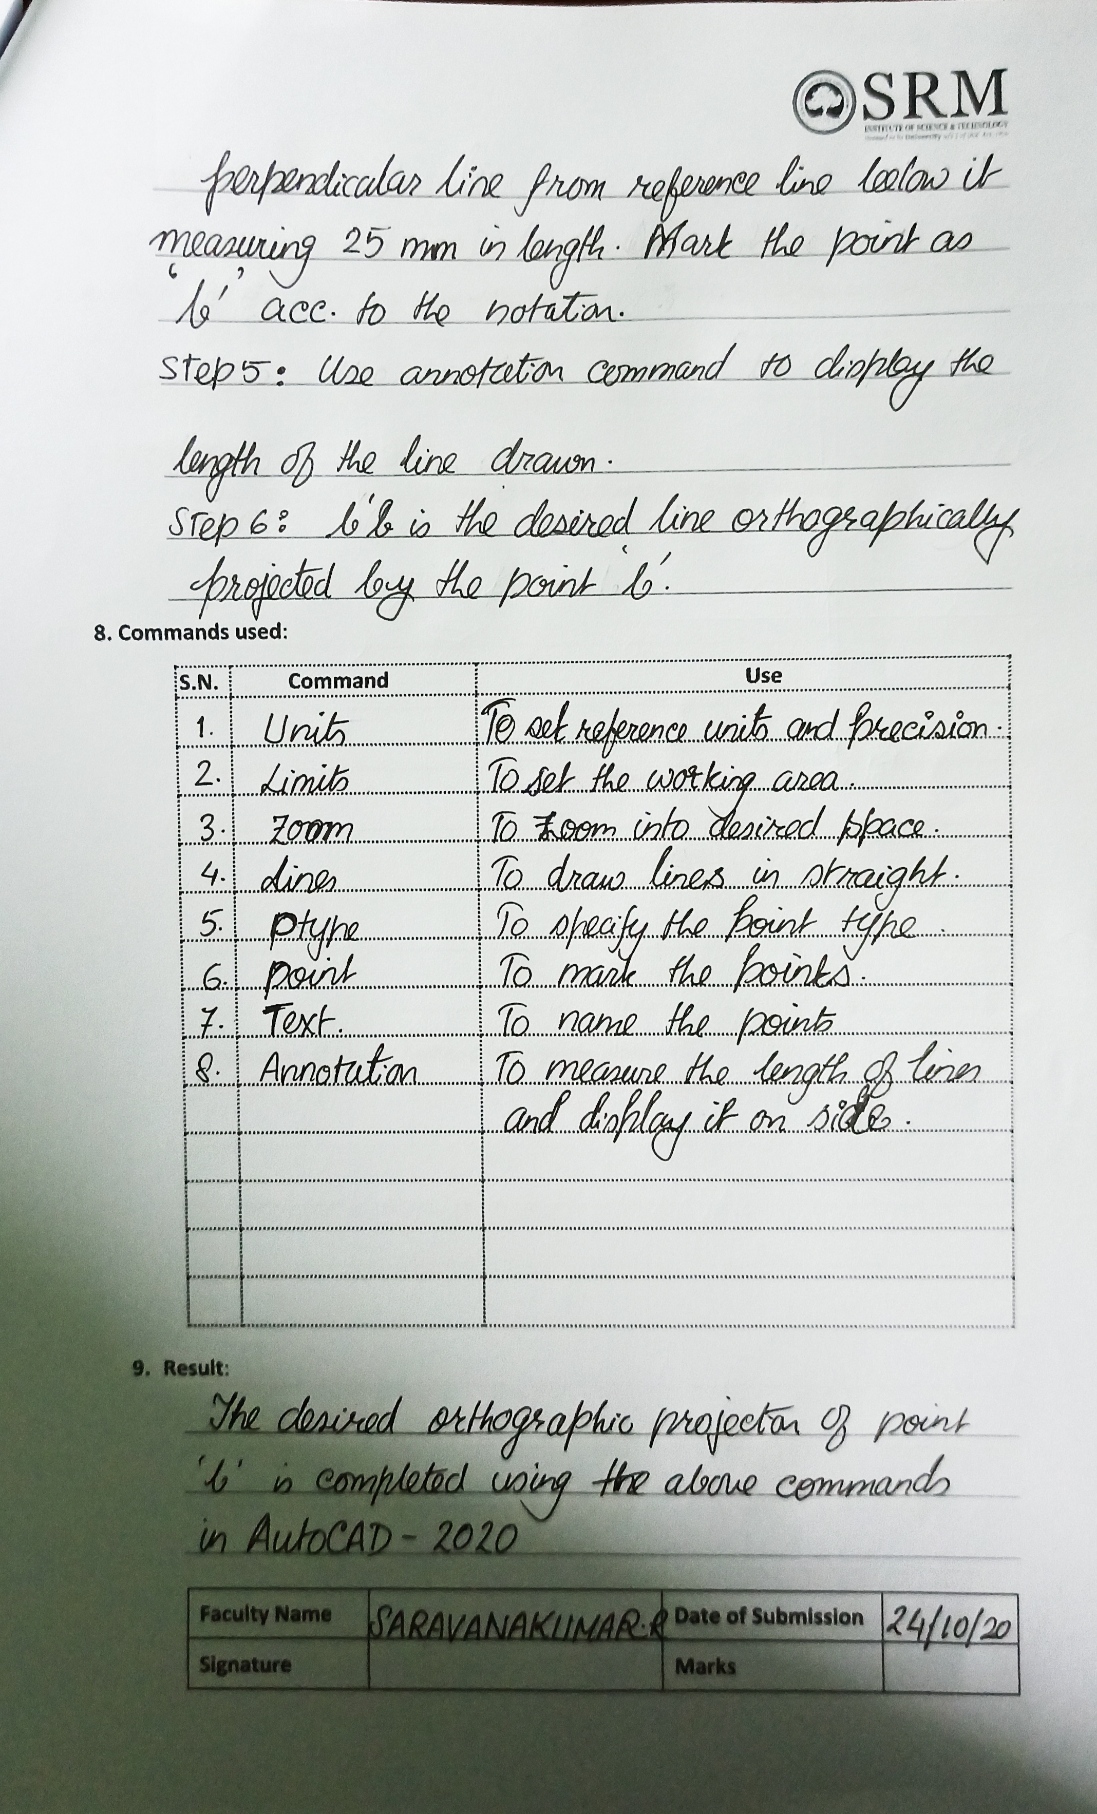 SRM
INSTITUTE OF SCIENCE & TECHNOLOGY
perpendicular line from reference line below it
measuring 25 mm in length. Mark the point as
'b'' acc. to the notation.
Step 5: Use annotation command to display the
length of the line drawn.
Step 6: b'b is the desired line orthographically
projected by the point 'b'.
8. Commands used:
S.N. Command Use
1. Units To set reference units and precision.
2. Limits To set the working area.
3. Zoom To Zoom into desired space.
4. Lines To draw lines in straight.
5. Ptype To specify the point type.
6. point To mark the points.
7. Text. To name the points
8. Annotation To measure the length of lines
and display it on side.
9. Result:
The desired orthographic projection of point
'b' is completed using the above commands
in AutoCAD - 2020
Faculty Name SARAVANAKUMAR.R Date of Submission 24/10/20
Signature Marks